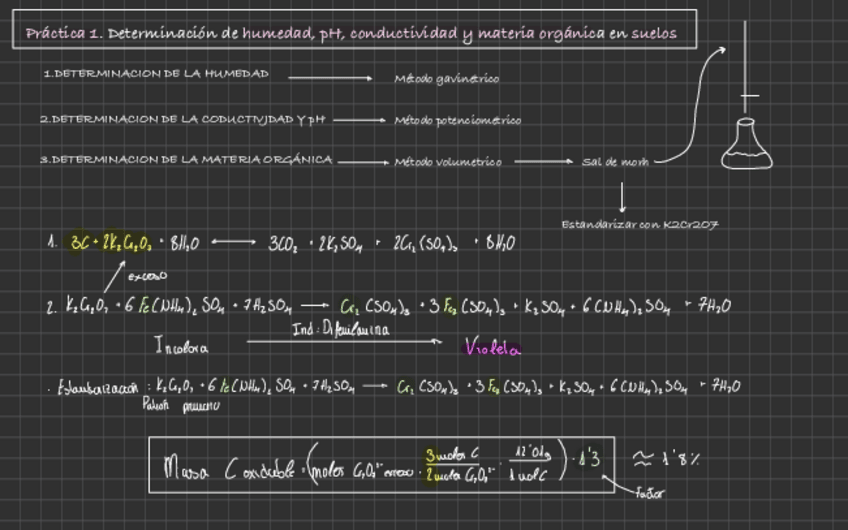 Práctica 1. Determinación de humedad, pH, conductividad y materia orgánica en suelos
1.DETERMINACION DE LA HUMEDAD → Método gavinétrico
2.DETERMINACION DE LA CODUCTIVJDAD Y pH → Método potenciométrico
3.DETERMINACION DE LA MATERIA ORGÁNICA → Método volumetrico → Sal de morh
Estandarizar con K2Cr2O7
1. 3C + 2K₂Cr₂O₇ + 8H₂O ⟷ 3CO₂ + 2K₂SO₄ + 2Cr₂(SO₄)₃ + 8H₂O
exceso
2. K₂Cr₂O₇ + 6 Fe(NH₄)₂ SO₄ + 7H₂SO₄ → Cr₂ (SO₄)₃ + 3 Fe₂ (SO₄)₃ + K₂SO₄ + 6(NH₄)₂SO₄ + 7H₂O
Ind: Difenilamina
Incolora → Violeta
. Estandarización : K₂Cr₂O₇ + 6 Fe(NH₄)₂ SO₄ + 7H₂SO₄ → Cr₂ (SO₄)₃ + 3 Fe₂ (SO₄)₃ + K₂SO₄ + 6(NH₄)₂SO₄ + 7H₂O
Patrón primario
Masa C oxidable = (moles Cr₂O₇²⁻ exceso · 3 moles C / 2 moles Cr₂O₇²⁻ · 12'01g / 1 mol C) · 1'3 ≈ 1'8%
factor